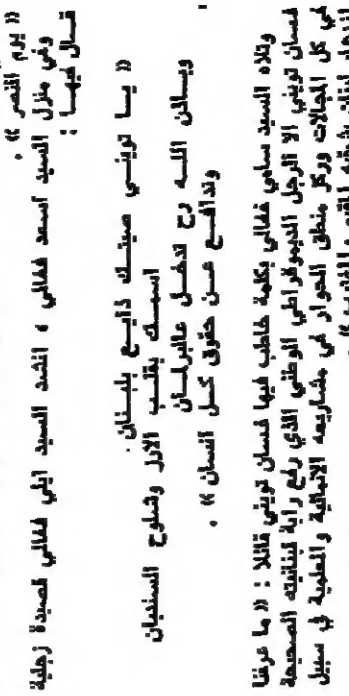 « يوم النصر » .
وفي منزل السيد اسعد فغالي ، انشد السيد ايلي فغالي قصيدة زجلية
قال فيها :
« يا تويني صيتك ذايع بلبنان
اسمك بقلب الارز وشلوح السنديان
وباذن الله رح تدخل عالبرلمان
وتدافع عن حقوق كل انسان » .
وتلاه السيد سامي فغالي بكلمة خاطب فيها غسان تويني قائلا : « ما عرفنا
غسان تويني الا الرجل الديموقراطي الوطني الذي رفع راية لبنانيته الصحيحة
في كل المجالات وركز منطق الحوار في مشاريعه الانمائية والعلمية في سبيل